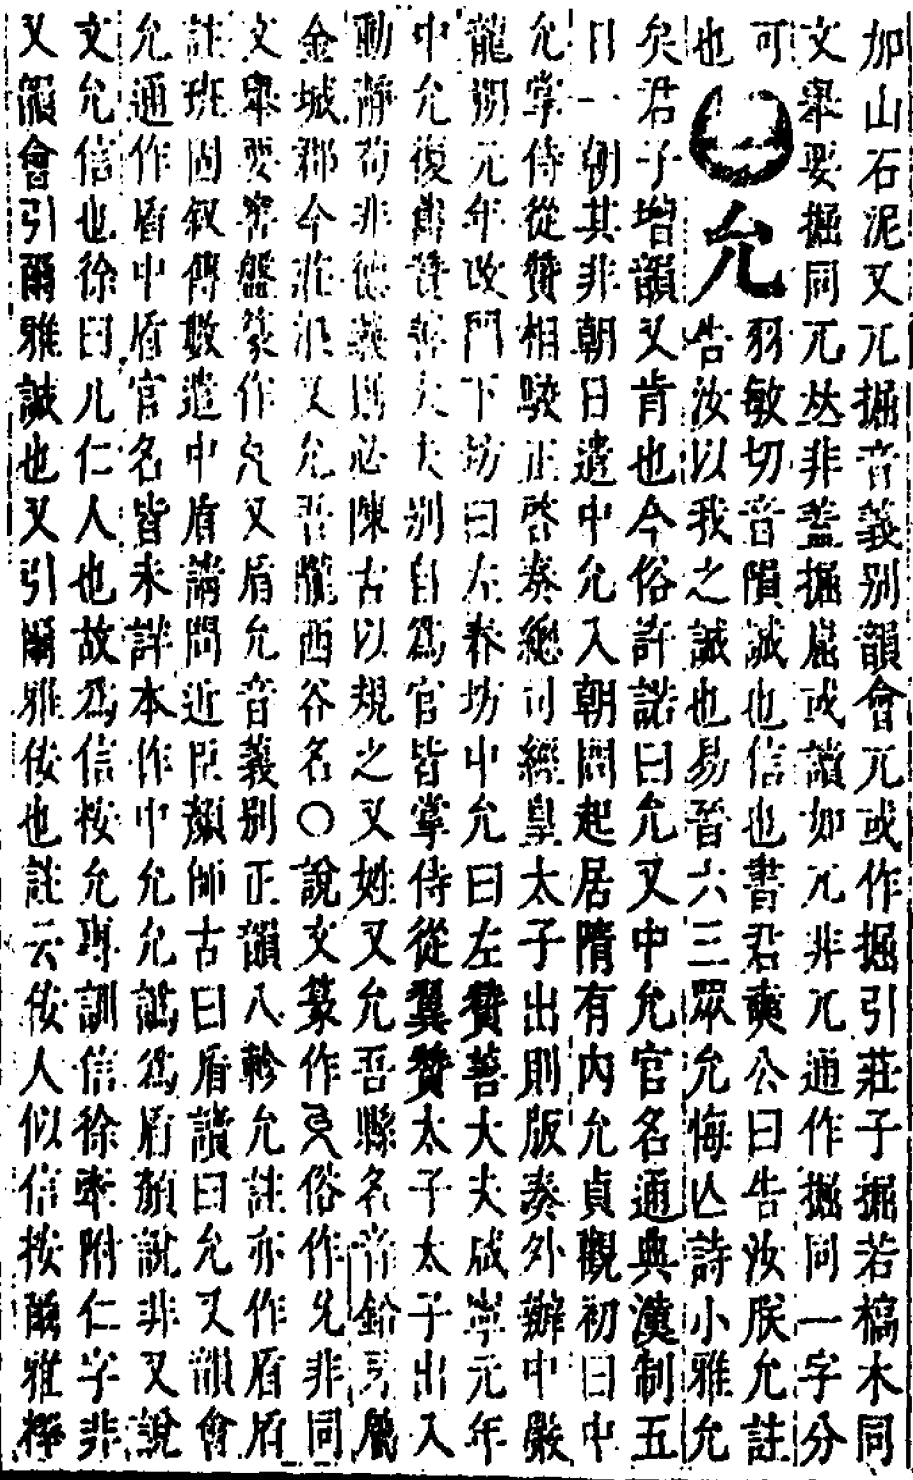 加山石泥又兀掘音義别韻會兀或作掘引莊子掘若槁木同
文舉要掘同兀𠀤非蓋掘崫或讀如兀非兀通作掘同一字分
可羽敏切音隕誠也信也書君奭公曰告汝朕允註
也允告汝以我之誠也易晉六三眾允悔亾詩小雅允
矣君子增韻又肯也今俗許諾曰允又中允官名通典漢制五
日一朝其非朝日遣中允入朝問起居隋有内允貞觀初曰中
允掌侍從贊相駮正啓奏總司經皇太子出則版奏外辦中嚴
龍朔元年改門下坊曰左春坊中允曰左贊善大夫咸亨元年
中允復舊贊善大夫别自爲官皆掌侍從翼贊太子太子出入
動靜苟非德義則必陳古以規之又姓又允吾縣名音鉛牙屬
金城郡今蘭州又允吾隴西谷名〇說文篆作𠃔俗作允非同
文舉要古盤篆作兊又盾允音義别正韻八軫允註亦作盾盾
註班固叙傳數遣中盾請問近臣顏師古曰盾讀曰允又韻會
允通作盾中盾官名皆未詳本作中允允譌爲盾顏說非又說
文允信也徐曰儿仁人也故爲信按允專訓信徐牽附仁字非
又韻會引爾雅誠也又引爾雅佞也註云佞人似信按爾雅釋